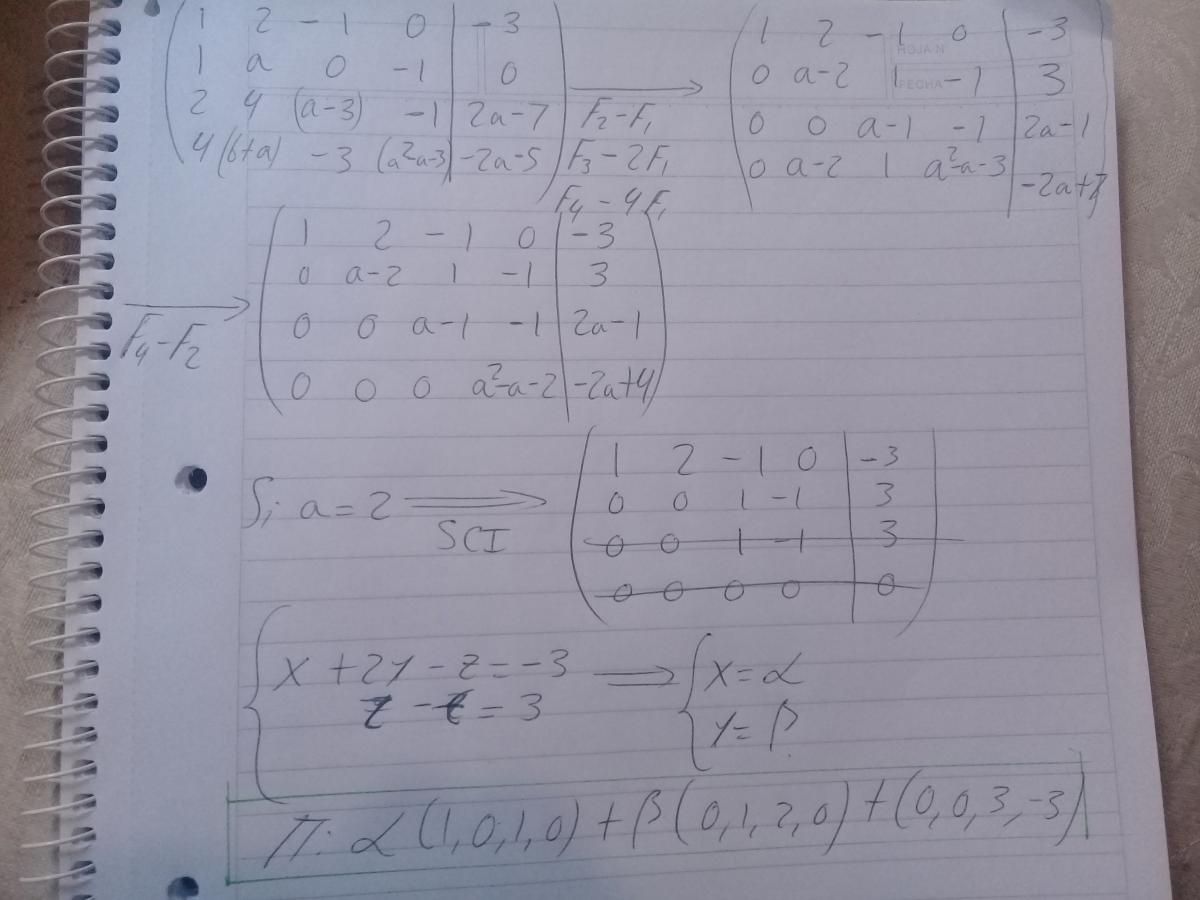 1 2 -1 0 | -3
1 a 0 -1 | 0
2 4 (a-3) -1 | 2a-7
4 (6+a) -3 (a²-a-3) | -2a-5
F₂-F₁
F₃-2F₁
F₄-4F₁
1 2 -1 0 | -3
0 a-2 1 -1 | 3
0 0 a-1 -1 | 2a-1
0 a-2 1 a²-a-3 | -2a+7
HOJA N
FECHA
F₄-F₂
1 2 -1 0 | -3
0 a-2 1 -1 | 3
0 0 a-1 -1 | 2a-1
0 0 0 a²-a-2 | -2a+4
Si a=2 ⟹ SCI
1 2 -1 0 | -3
0 0 1 -1 | 3
0 0 1 -1 | 3
0 0 0 0 | 0
x+2y-z=-3 ⟹ x=α
z-t=3 y=β
π: α(1,0,1,0)+β(0,1,2,0)+(0,0,3,-3)